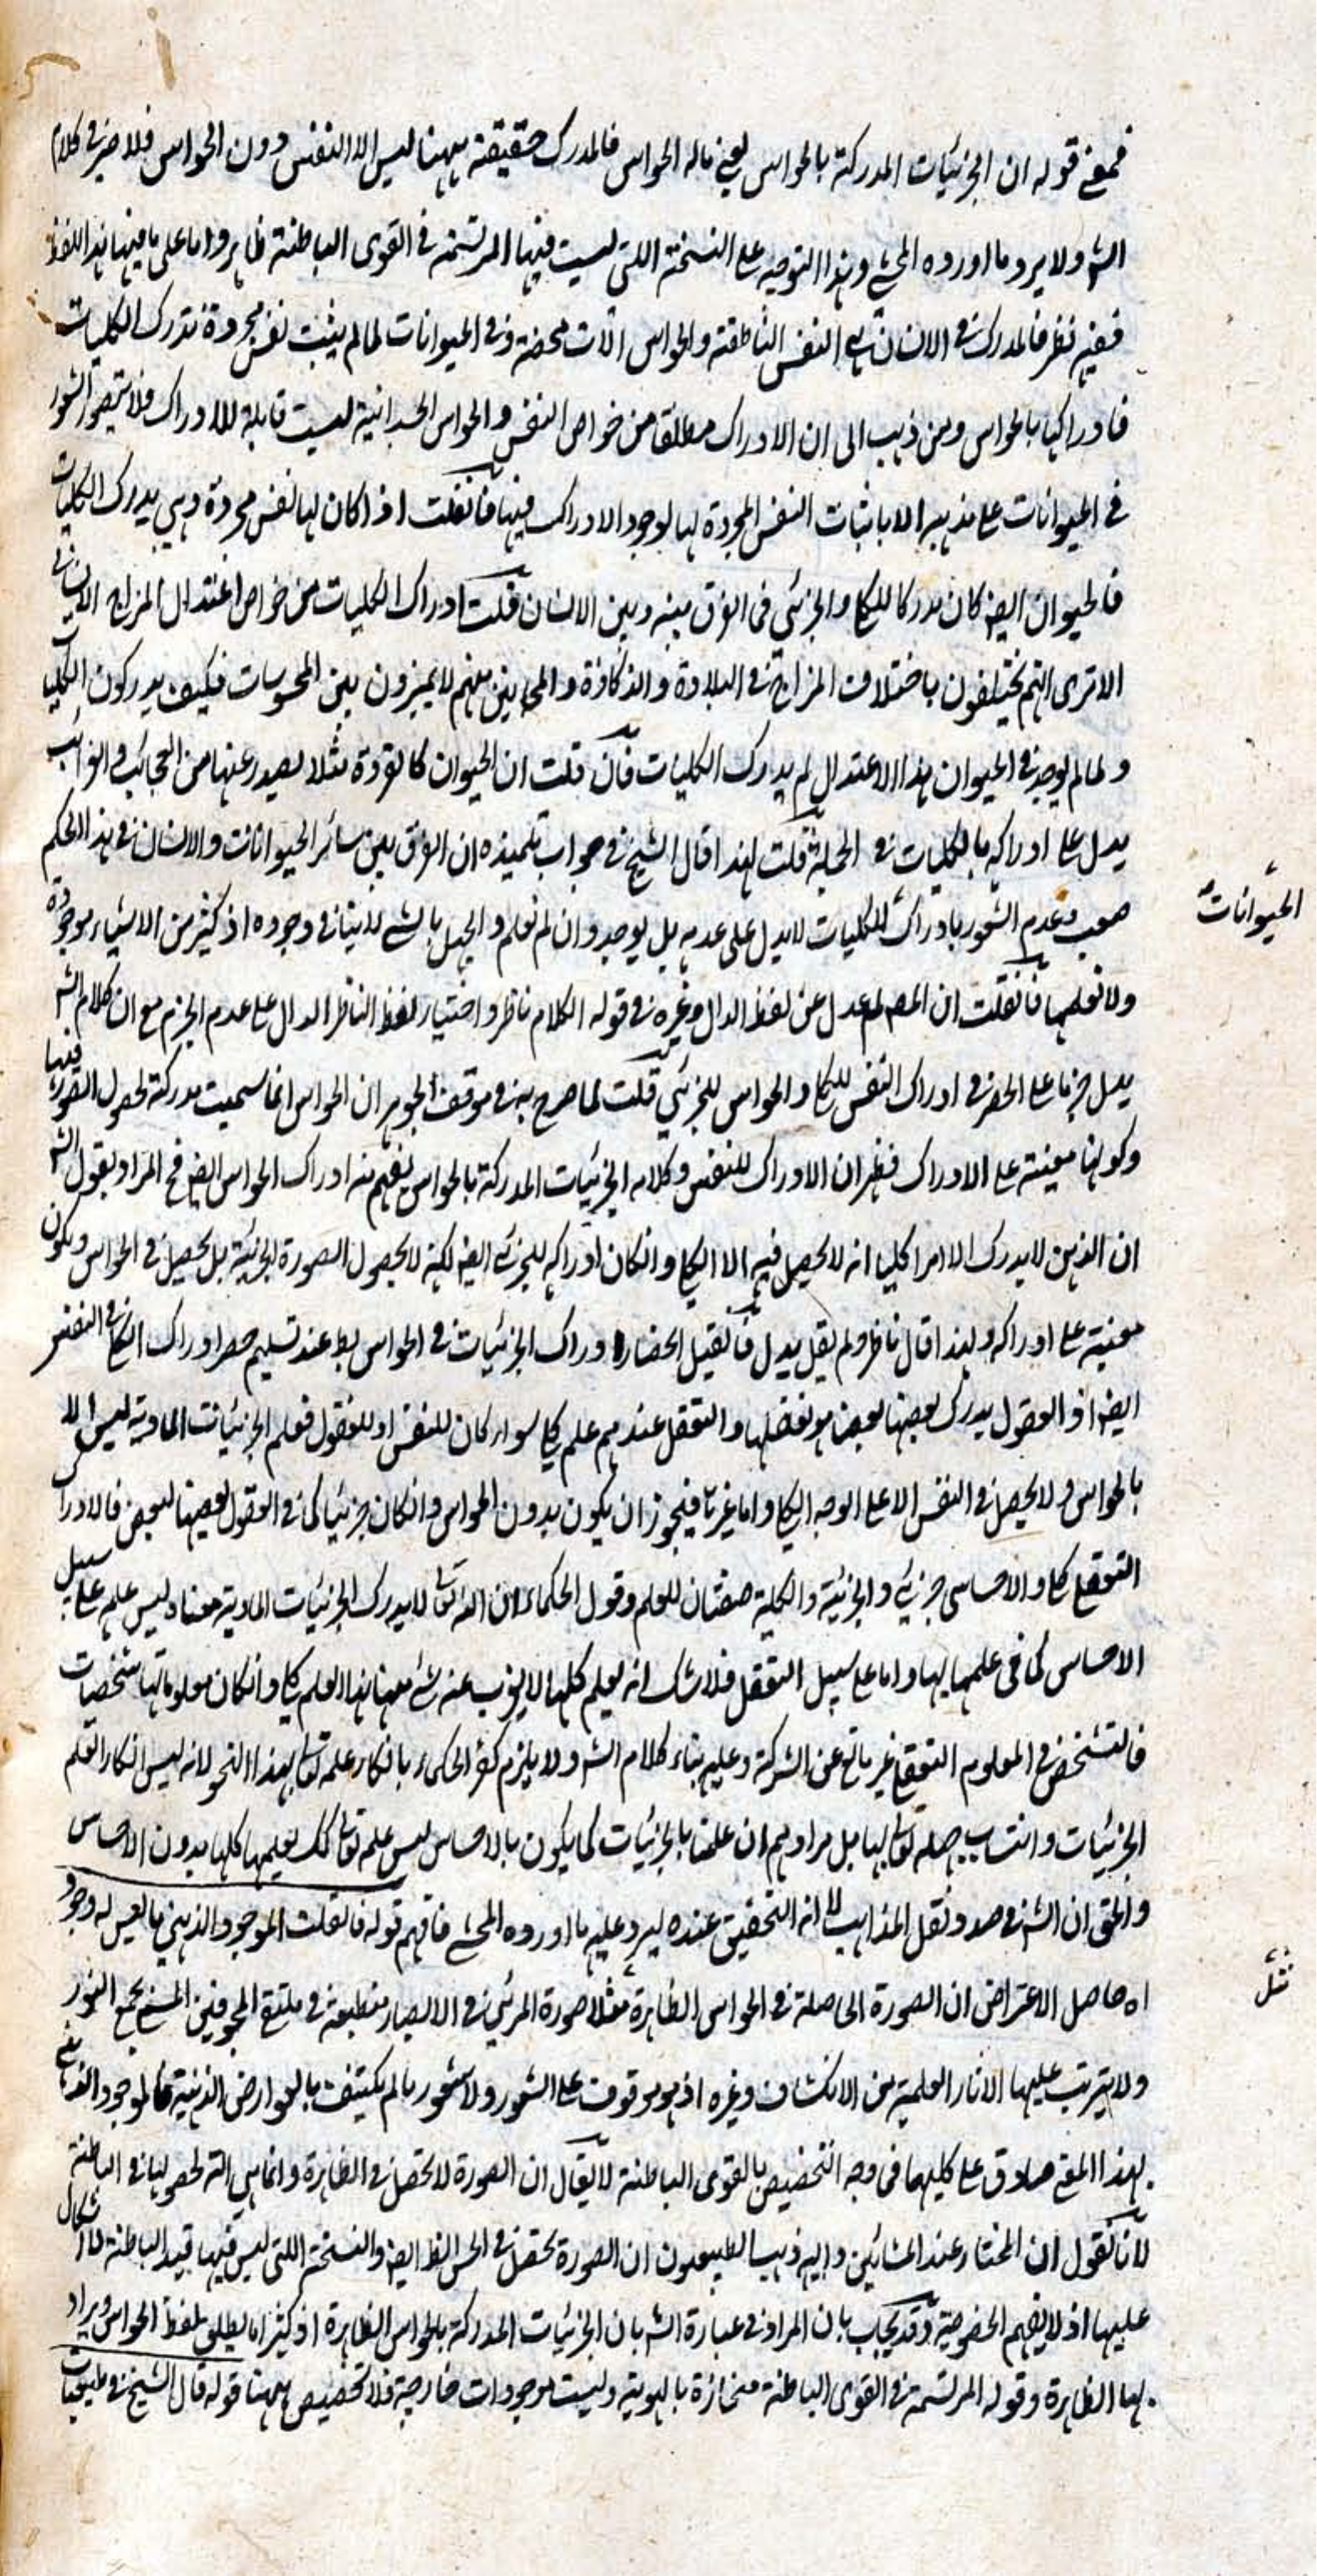 فمعنى قوله ان الجزئيات المدركة بالحواس يعني ماله الحواس فالمدرك حقيقة ههنا ليس الا النفس دون الحواس فلا ضير في كلام
الش ولا يرد ما اورده المحشي وهذا التوجيه على النسخة اللتي ليست فيها المرتسمة في القوى الباطنة ظاهر واما على ما فيها هذا اللفظ
ففيه نظر فالمدرك في الانسان هي النفس الناطقة والحواس آلات محضة وفي الحيوانات لما لم يثبت نفس مجردة تدرك الكليات
فادراكها بالحواس ومن ذهب الى ان الادراك مطلقا من خواص النفس والحواس الجسمانية ليست قابلة للادراك فلا يتصور الشعور
في الحيوانات على مذهبه الا باثبات النفس المجردة لها لوجود الادراك فيها فانقلت اذا كان لها نفس مجردة وهي يدرك الكليات
فالحيوان ايضا كان مدركا للكلي والجزئي فما الفرق بينه وبين الانسان قلت ادراك الكليات من خواص اعتدال المزاج الانساني
الا ترى انهم يختلفون باختلاف المزاج في البلادة والذكاوة والمجانين منهم لا يميزون بين المحسوسات فكيف يدركون الكليات
ولما لم يوجد في الحيوان هذا الاعتدال لم يدارك الكليات فان قلت ان الحيوان كالقردة مثلا يصدر عنها من العجائب والغرائب
يدل على ادراكه بالكليات في الجملة قلت لهذا قال الشيخ في جواب تلميذه ان الفرق بين سائر الحيوانات والانسان في هذا الحكم
صعب وعدم الشعور بادراك للكليات لا يدل على عدمه بل يوجد وان لم نعلم والجهل بالشي لا ينافي وجوده اذ كثير من الاشياء موجودة
الحيوانات
ولا نعلمها فانقلت ان المص لم عدل عن لفظ الدال وغيره في قوله الكلام ناظر واختيار لفظ الناظر الدال على عدم الجزم مع ان كلام الش
يدل جزما على الحصر في ادراك النفس للكلي والحواس للجزئي قلت لما صرح به في موقف الجوهر ان الحواس انما سميت مدركة لحصول الصورة فيها
وكونها معينة على الادراك فظهر ان الادراك للنفس وكلامه الجزئيات المدركة بالحواس يفهم منه ادراك الحواس ايضا فح المراد بقول الش
ان الذهن لا يدرك الا امرا كليا انه لا يحصل فيه الا الكلي وانكان ادراكه للجزئي ايضا لكنه لا يحصول الصورة الجزئية بل يحصل في الحواس ويكون
معينة على ادراكه ولهذا قال ناظر ولم يقل يدل فانقيل انحصار ادراك الجزئيات في الحواس بط عند تسليم حصر ادراك الكلي في النفس
ايضا اذ العقول يدرك بعضها بعضا هو تعقلها والتعقل عندهم علم كلي سواء كان للنفس او للعقول فعلم الجزئيات المادية ليس الا
بالحواس ولا يحصل في النفس الا على الوجه الكلي واما غيرها فيجوز ان يكون بدون الحواس وانكان جزئيا كما في العقول بعضها لبعض فالادراك
التعقل كلي والاحساس جزئي والجزئية والكلية صفتان للعلم وقول الحكماء ان الله تعالى لا يدرك الجزئيات المادية معناه ليس علمه على سبيل
الاحساس كما في علمها بها واما على سبيل التعقل فلا شك انه يعلم كلها لا يعزب عنه شئ منها هذا العلم كلي وانكان معلوماتها شخصيات
فالتشخص في المعلوم التعقلي غير مانع عن الشركة وعليه بناء كلام الش ولا يلزم كفر الحكماء بانكار علمه تعالى بهذا النحو لانه ليس انكار العلم
الجزئيات وانتساب جهله تعالى بها بل مرادهم ان علمنا بالجزئيات كما يكون بالاحساس ليس علمه تعالى كك يعلمها كلها بدون الاحساس
والحق ان الش في صدد نقل المذاهب لا انه التحقيق عنده ليرد عليه ما اورده المحشي فافهم قوله فانقلت الموجود الذهني ما ليس له وجود
اه حاصل الاعتراض ان الصورة الحاصلة في الحواس الظاهرة مثلا صورة المرئي في الابصار منطبعة في ملتقى المجوفين المسمى بمجمع النور
ولا يترتب عليها الاثار العلمية من الانكشاف وغيره اذ هو موقوف على الشعور ولا شعور ما لم يكتنف بالعوارض الذهنية فالموجود الذهني
بهذا المعنى صادق على كليهما فما وجه التخصيص بالقوى الباطنة لا يقال ان الصورة لا تحصل في الظاهرة وانما هي آلة لحصولها في الباطنة
لانا نقول ان المختار عند المشائين واليه ذهب الطبيعيون ان الصورة تحصل في الحس الظاهر ايضا والنسخة اللتي ليس فيها قيد الباطنة لا اشكال
عليها اذ لا يفهم الخصوصية وقد يجاب بان المراد في عبارة الش بان الجزئيات المدركة بالحواس الظاهرة اذ كثيرا ما يطلق لفظ الحواس ويراد
بها الظاهرة وقوله المرتسمة في القوى الباطنة منحازة بالهوية وليست موجودات خارجية فلا تخصيص ههنا قوله قال الشيخ في طبيعيات